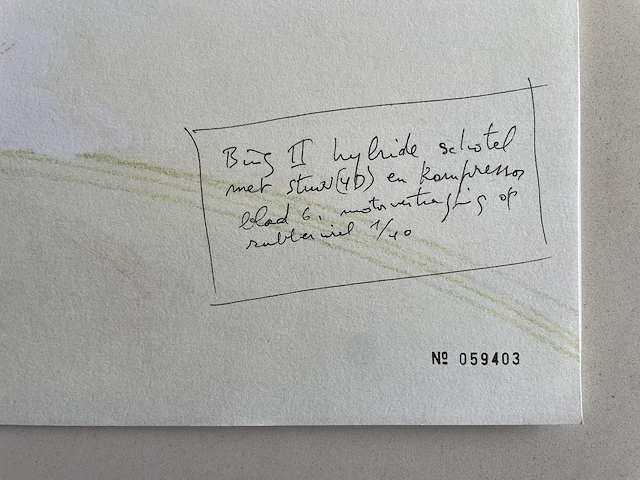 Bing II hybride schotel
met stuur(4D) en kompressor
blad 6, motorvertraging op
rubberwiel 1/40
Nº 059403